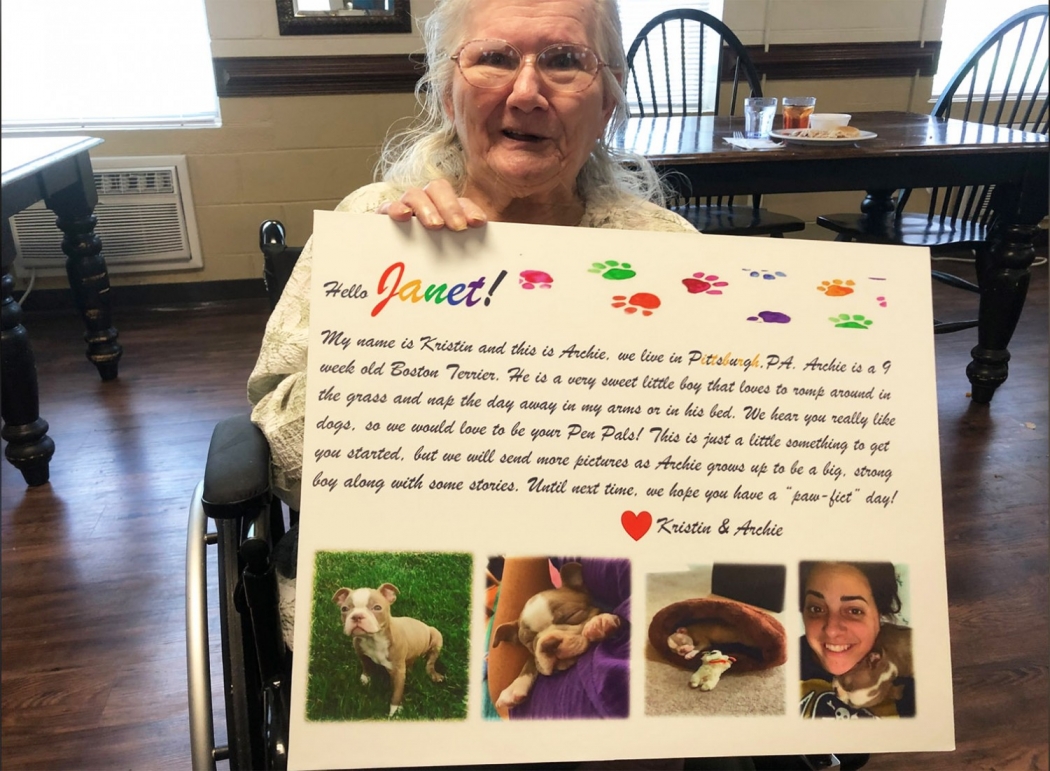 Hello Janet!
My name is Kristin and this is Archie, we live in Pittsburgh, PA. Archie is a 9
week old Boston Terrier. He is a very sweet little boy that loves to romp around in
the grass and nap the day away in my arms or in his bed. We hear you really like
dogs, so we would love to be your Pen Pals! This is just a little something to get
you started, but we will send more pictures as Archie grows up to be a big, strong
boy along with some stories. Until next time, we hope you have a "paw-fict" day!
Kristin & Archie